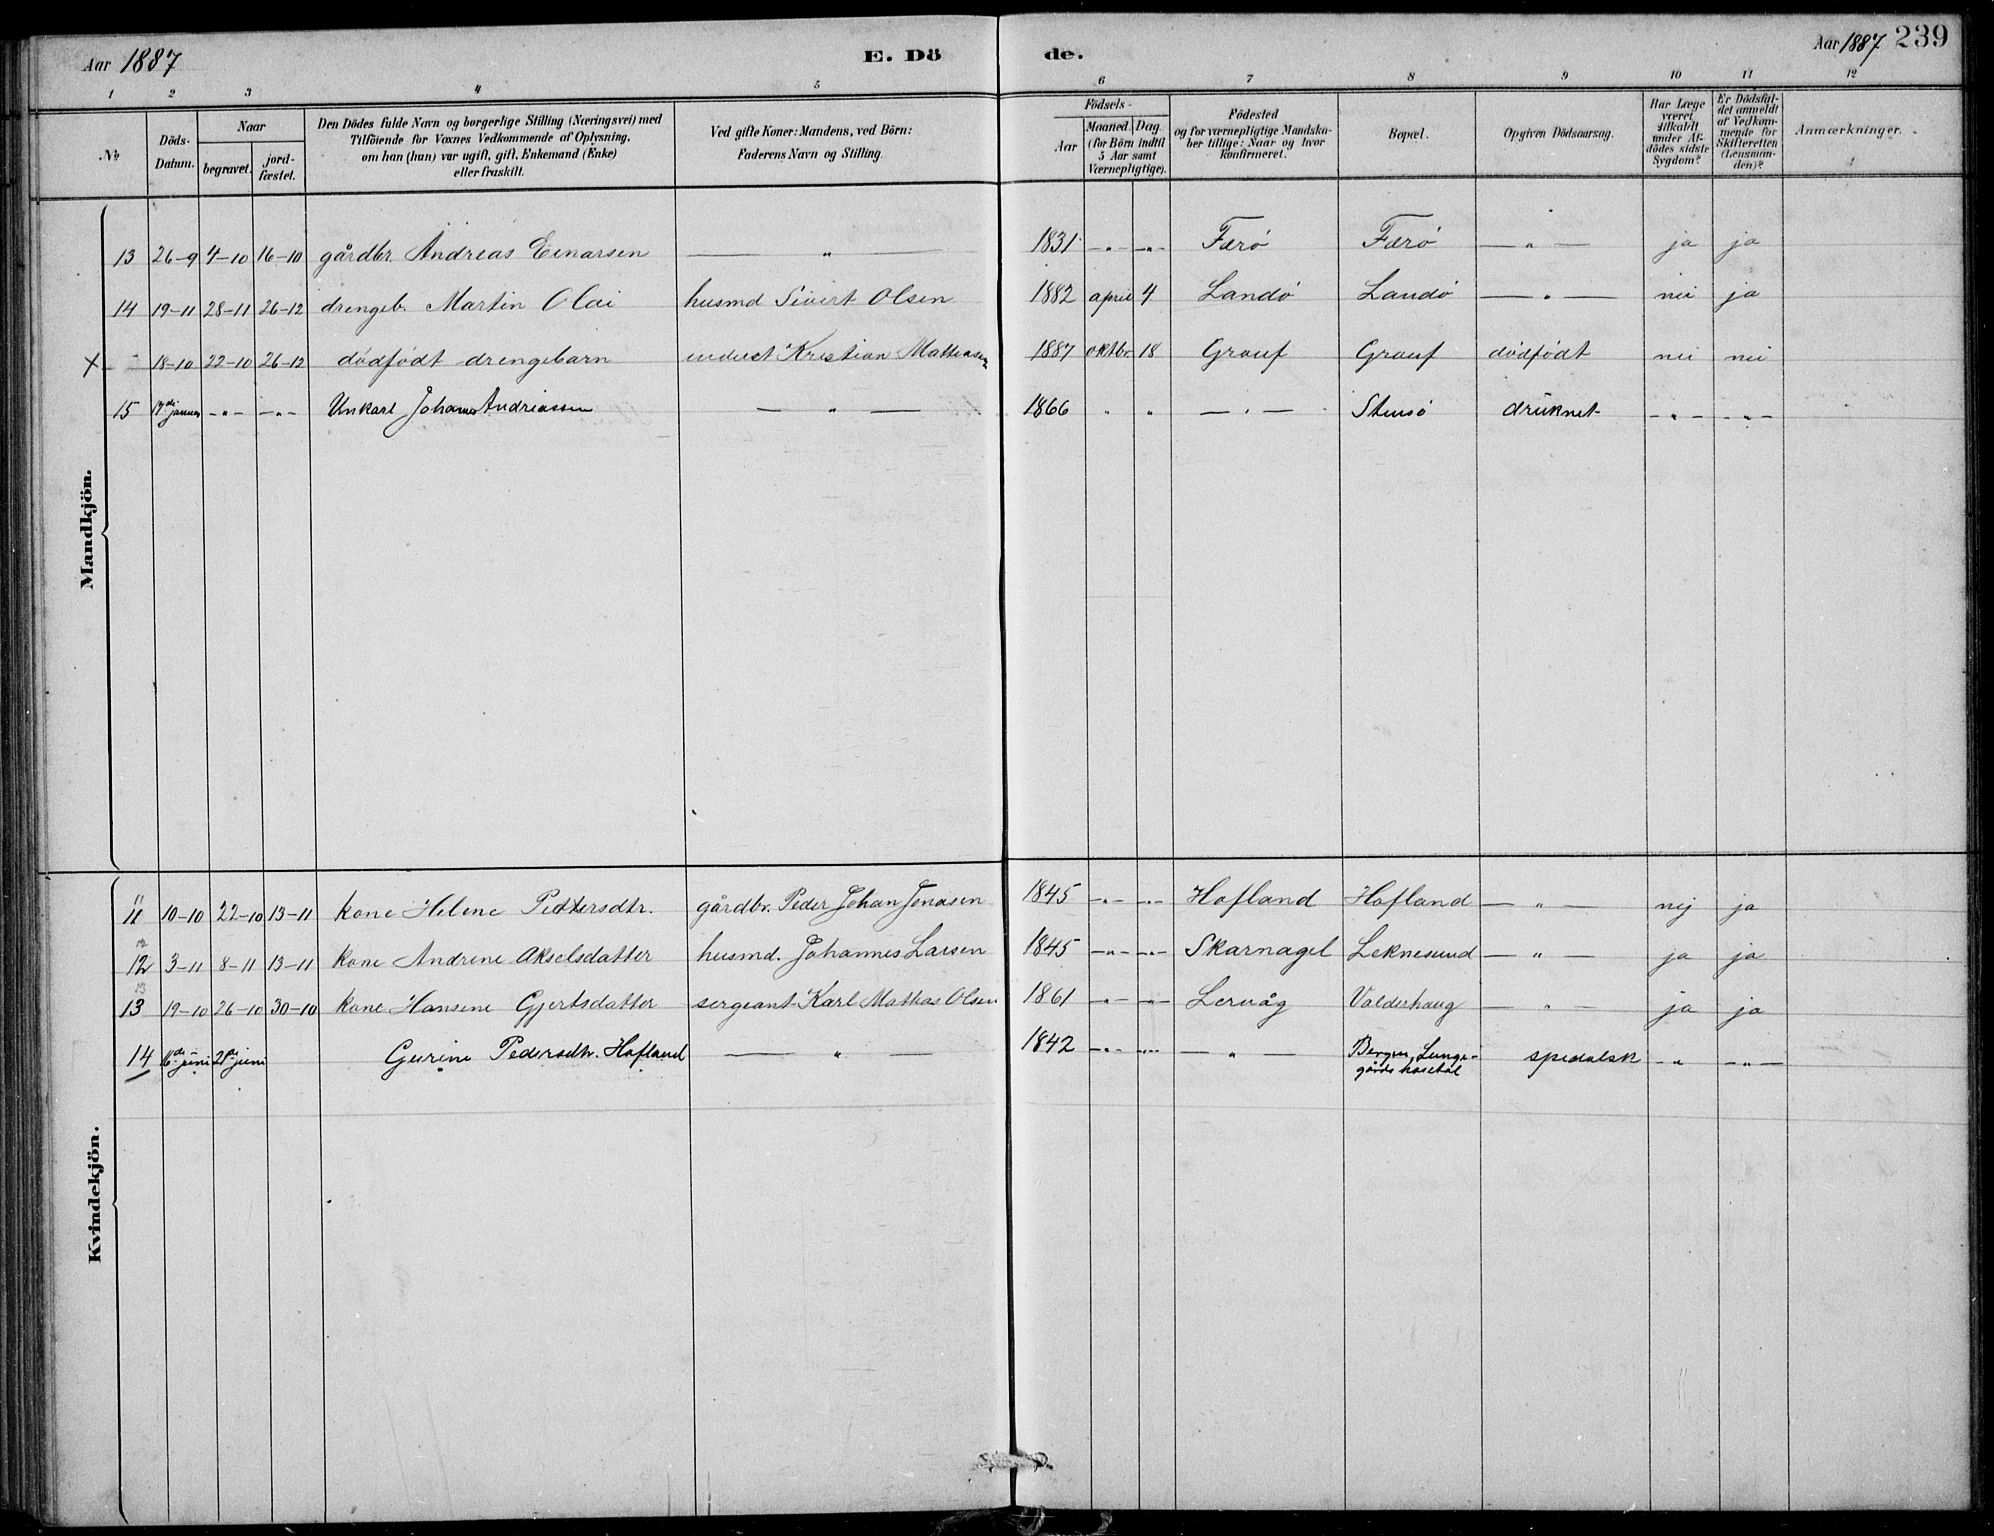 Aar 1887
E. Dö
de.
Aar 1887 239
1 2 3 4 5 6 7 8 9 10 11 12
No.
Döds-Datum.
Naar
begravet.
jord-fæstet.
Den Dödes fulde Navn og borgerlige Stilling (Næringsvei) med
Tilföiende for Voxnes Vedkommende af Oplysning,
om han (hun) var ugift, gift, Enkemand (Enke)
eller fraskilt.
Ved gifte Koner: Mandens, ved Börn:
Faderens Navn og Stilling.
Födsels-
Aar
Maaned. Dag.
(for Börn indtil
5 Aar samt
Værnepligtige).
Födested
og for værnepligtige Mandska-
ber tillige: Naar og hvor
konfirmeret.
Bopæl.
Opgiven Dödsaarsag.
Har Læge
været
tilkaldt
under Af-
dödes sidste
Sygdom?
Er Dödsfal-
det anmeldt
af Vedkom-
mende for
Skifteretten
(Lensman-
den)?
Anmærkninger.
Mandkjön.
13 26-9 4-10 16-10 gårdbr. Andreas Einarsen — " — 1831 -"- -"- Færö Færö — " — ja ja
14 19-11 28-11 26-12 drengeb. Martin Olai husmd Sivert Olsen 1882 april 4 Landö Landö — " — nei ja
X - 18-10 22-10 26-12 dödfödt drengebarn inderst Kristian Mathiasen 1887 oktbr. 18 Grouf Grouf dödfödt nei nei
15 17de januar -"- -"- Unkarl Johannes Andreassen — " — 1866 " " — " — Stensö druknet -"- -"-
Kvindekjön.
11
11 10-10 22-10 13-11 kone Helene Pettersdtr. gårdbr. Peder Johan Jonasen 1845 -"- -"- Hofland Hofland — " — nej ja
12
12 3-11 8-11 13-11 kone Andrine Akselsdatter husmd. Johannes Larsen 1845 -"- -"- Skarnagel Leknesund — " — ja ja
13
13 19-10 26-10 30-10 kone Hansene Gjertsdatter sergeant Karl Mathias Olsen 1861 -"- -"- Lervåg Valderhaug — " — ja ja
14 16de juni 21de juni Gurine Pedersdtr. Hofland — " — 1842 -"- -"- — " — Bergen, Lunge-
gårds hosital spedalsk -"- -"-